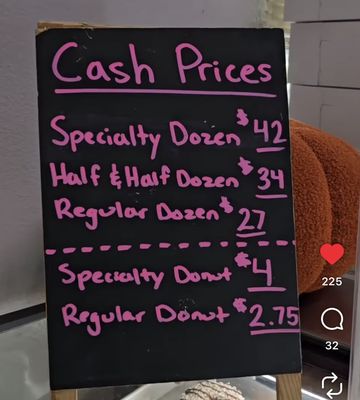 Cash Prices
Specialty Dozen $42
Half & Half Dozen $34
Regular Dozen $27
Specialty Donut $4
Regular Donut $2.75
225
32